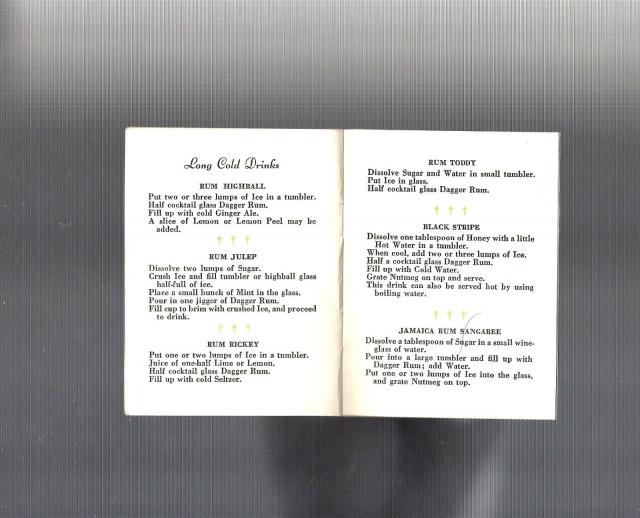 Long Cold Drinks
RUM HIGHBALL
Put two or three lumps of Ice in a tumbler.
Half cocktail glass Dagger Rum.
Fill up with cold Ginger Ale.
A slice of Lemon or Lemon Peel may be
added.
RUM JULEP
Dissolve two lumps of Sugar.
Crush Ice and fill tumbler or highball glass
half-full of ice.
Place a small bunch of Mint in the glass.
Pour in one jigger of Dagger Rum.
Fill cup to brim with crushed Ice, and proceed
to drink.
RUM RICKEY
Put one or two lumps of Ice in a tumbler.
Juice of one-half Lime or Lemon.
Half cocktail glass Dagger Rum.
Fill up with cold Seltzer.
RUM TODDY
Dissolve Sugar and Water in small tumbler.
Put Ice in glass.
Half cocktail glass Dagger Rum.
BLACK STRIPE
Dissolve one tablespoon of Honey with a little
Hot Water in a tumbler.
When cool, add two or three lumps of Ice.
Half a cocktail glass Dagger Rum.
Fill up with Cold Water.
Grate Nutmeg on top and serve.
This drink can also be served hot by using
boiling water.
JAMAICA RUM SANGAREE
Dissolve a tablespoon of Sugar in a small wine-
glass of water.
Pour into a large tumbler and fill up with
Dagger Rum; add Water.
Put one or two lumps of Ice into the glass,
and grate Nutmeg on top.